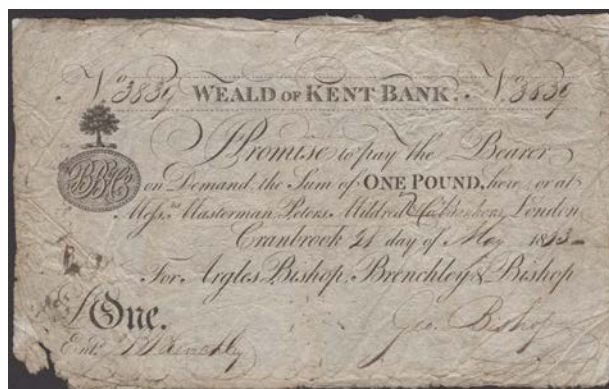 No. 3839 WEALD OF KENT BANK. No. 3839
I Promise to pay the Bearer
on Demand the Sum of ONE POUND, here, or at
Messrs. Masterman, Peters, Mildred & London
Cranbrook 21 day of May 1813
For Argles Bishop, Brenchley & Bishop
£One.
Geo. Bishop
Entd. Brenchley